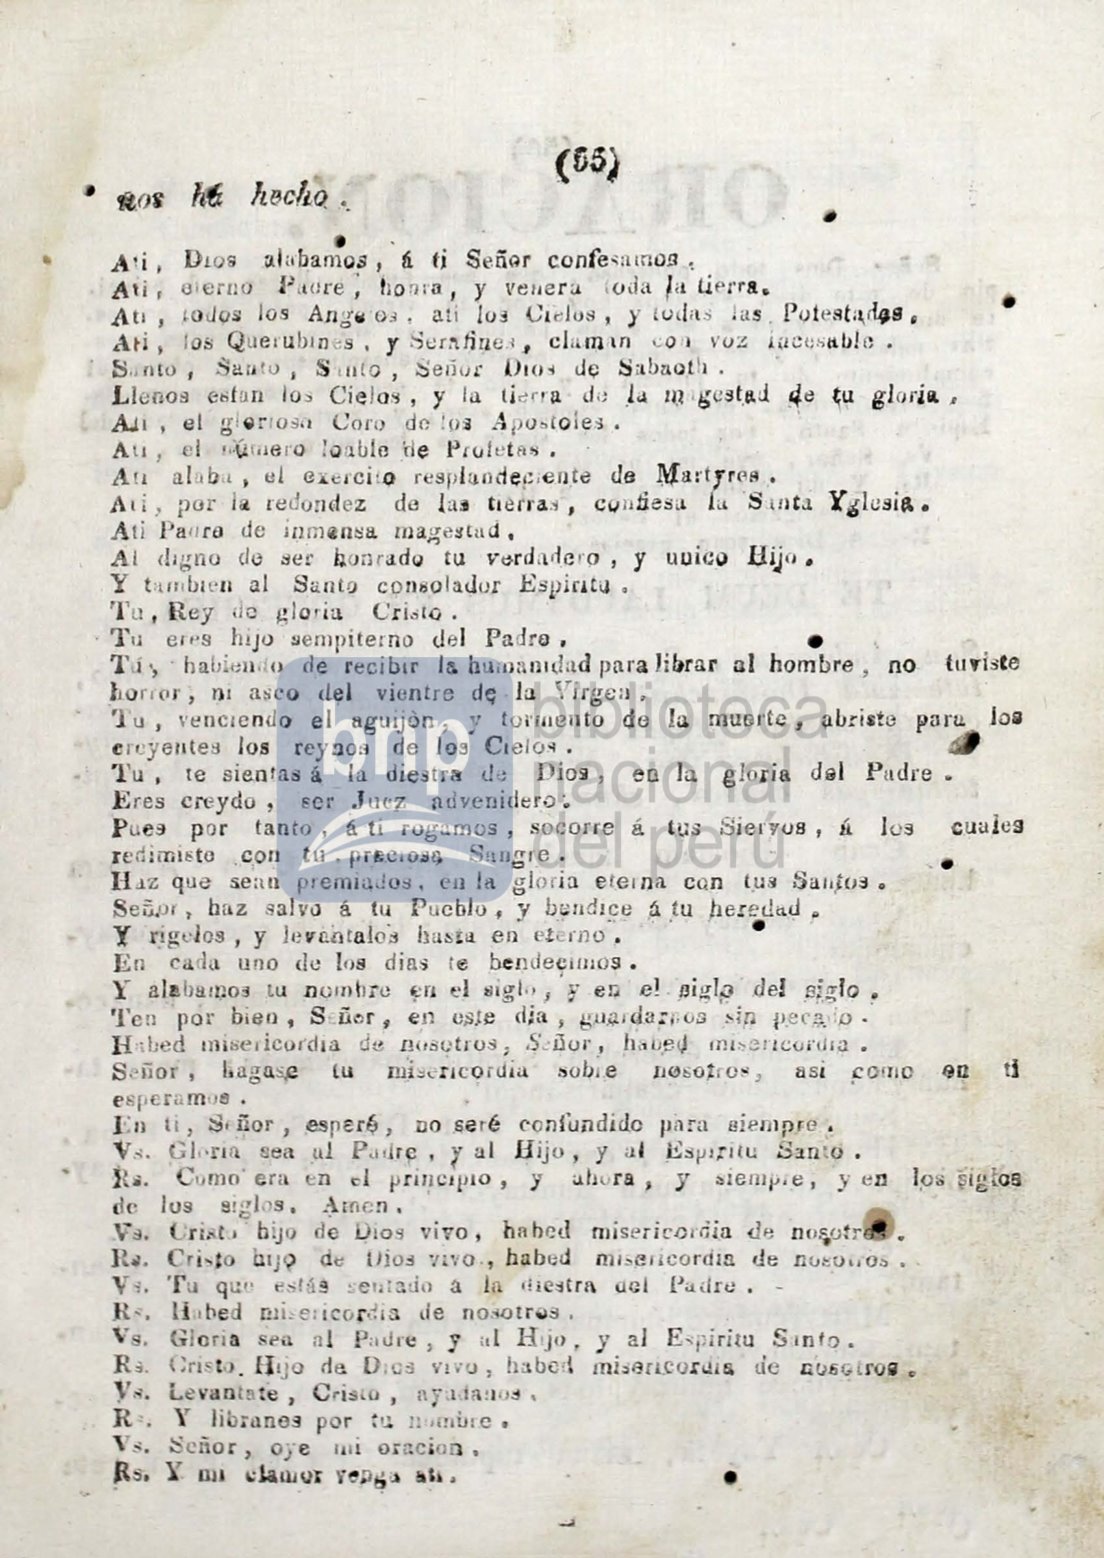 (55)
nos há hecho.
Ati, Dios alabamos, á ti Señor confesamos.
Ati, eterno Padre, honra, y venera toda la tierra.
Ati, todos los Angelos, ati los Cielos, y todas las Potestades.
Ati, los Querubines, y Serafines, claman con voz incesable.
Santo, Santo, Santo, Señor Dios de Sabaoth.
Llenos estan los Cielos, y la tierra de la magestad de tu gloria.
Ati, el glorioso Coro de los Apostoles.
Ati, el número loable de Profetas.
Ati alaba, el exercito resplandeciente de Martyres.
Ati, por la redondez de las tierras, confiesa la Santa Yglesia.
Ati Padre de inmensa magestad.
Al digno de ser honrado tu verdadero, y unico Hijo.
Y tambien al Santo consolador Espiritu.
Tu, Rey de gloria Cristo.
Tu eres hijo sempiterno del Padre.
Tú, habiendo de recibir la humanidad para librar al hombre, no tuviste
horror, ni asco del vientre de la Virgen.
Tu, venciendo el aguijòn, y tormento de la muerte, abriste para los
creyentes los reynos de los Cielos.
Tu, te sientas á la diestra de Dios, en la gloria del Padre.
Eres creydo, ser Juez advenidero.
Pues por tanto, á ti rogamos, socorre á tus Siervos, á los cuales
redimiste con tu preciosa Sangre.
Haz que sean premiados, en la gloria eterna con tus Santos.
Señor, haz salvo á tu Pueblo, y bendice á tu heredad.
Y rigelos, y levantalos hasta en eterno.
En cada uno de los dias te bendecimos.
Y alabamos tu nombre en el siglo, y en el siglo del siglo.
Ten por bien, Señor, en este dia, guardarnos sin pecado.
Habed misericordia de nosotros, Señor, habed misericordia.
Señor, hagase tu misericordia sobre nosotros, asi como en ti
esperamos.
En ti, Señor, esperé, no seré confundido para siempre.
Vs. Gloria sea al Padre, y al Hijo, y al Espiritu Santo.
Rs. Como era en el principio, y ahora, y siempre, y en los siglos
de los siglos. Amen.
Vs. Cristo hijo de Dios vivo, habed misericordia de nosotros.
Rs. Cristo hijo de Dios vivo, habed misericordia de nosotros.
Vs. Tu que estás sentado á la diestra del Padre.
Rs. Habed misericordia de nosotros.
Vs. Gloria sea al Padre, y al Hijo, y al Espiritu Santo.
Rs. Cristo Hijo de Dios vivo, habed misericordia de nosotros.
Vs. Levantate, Cristo, ayudanos.
Rs. Y libranos por tu nombre.
Vs. Señor, oye mi oracion.
Rs. Y mi clamor venga ati.
bnp biblioteca
nacional
del perú